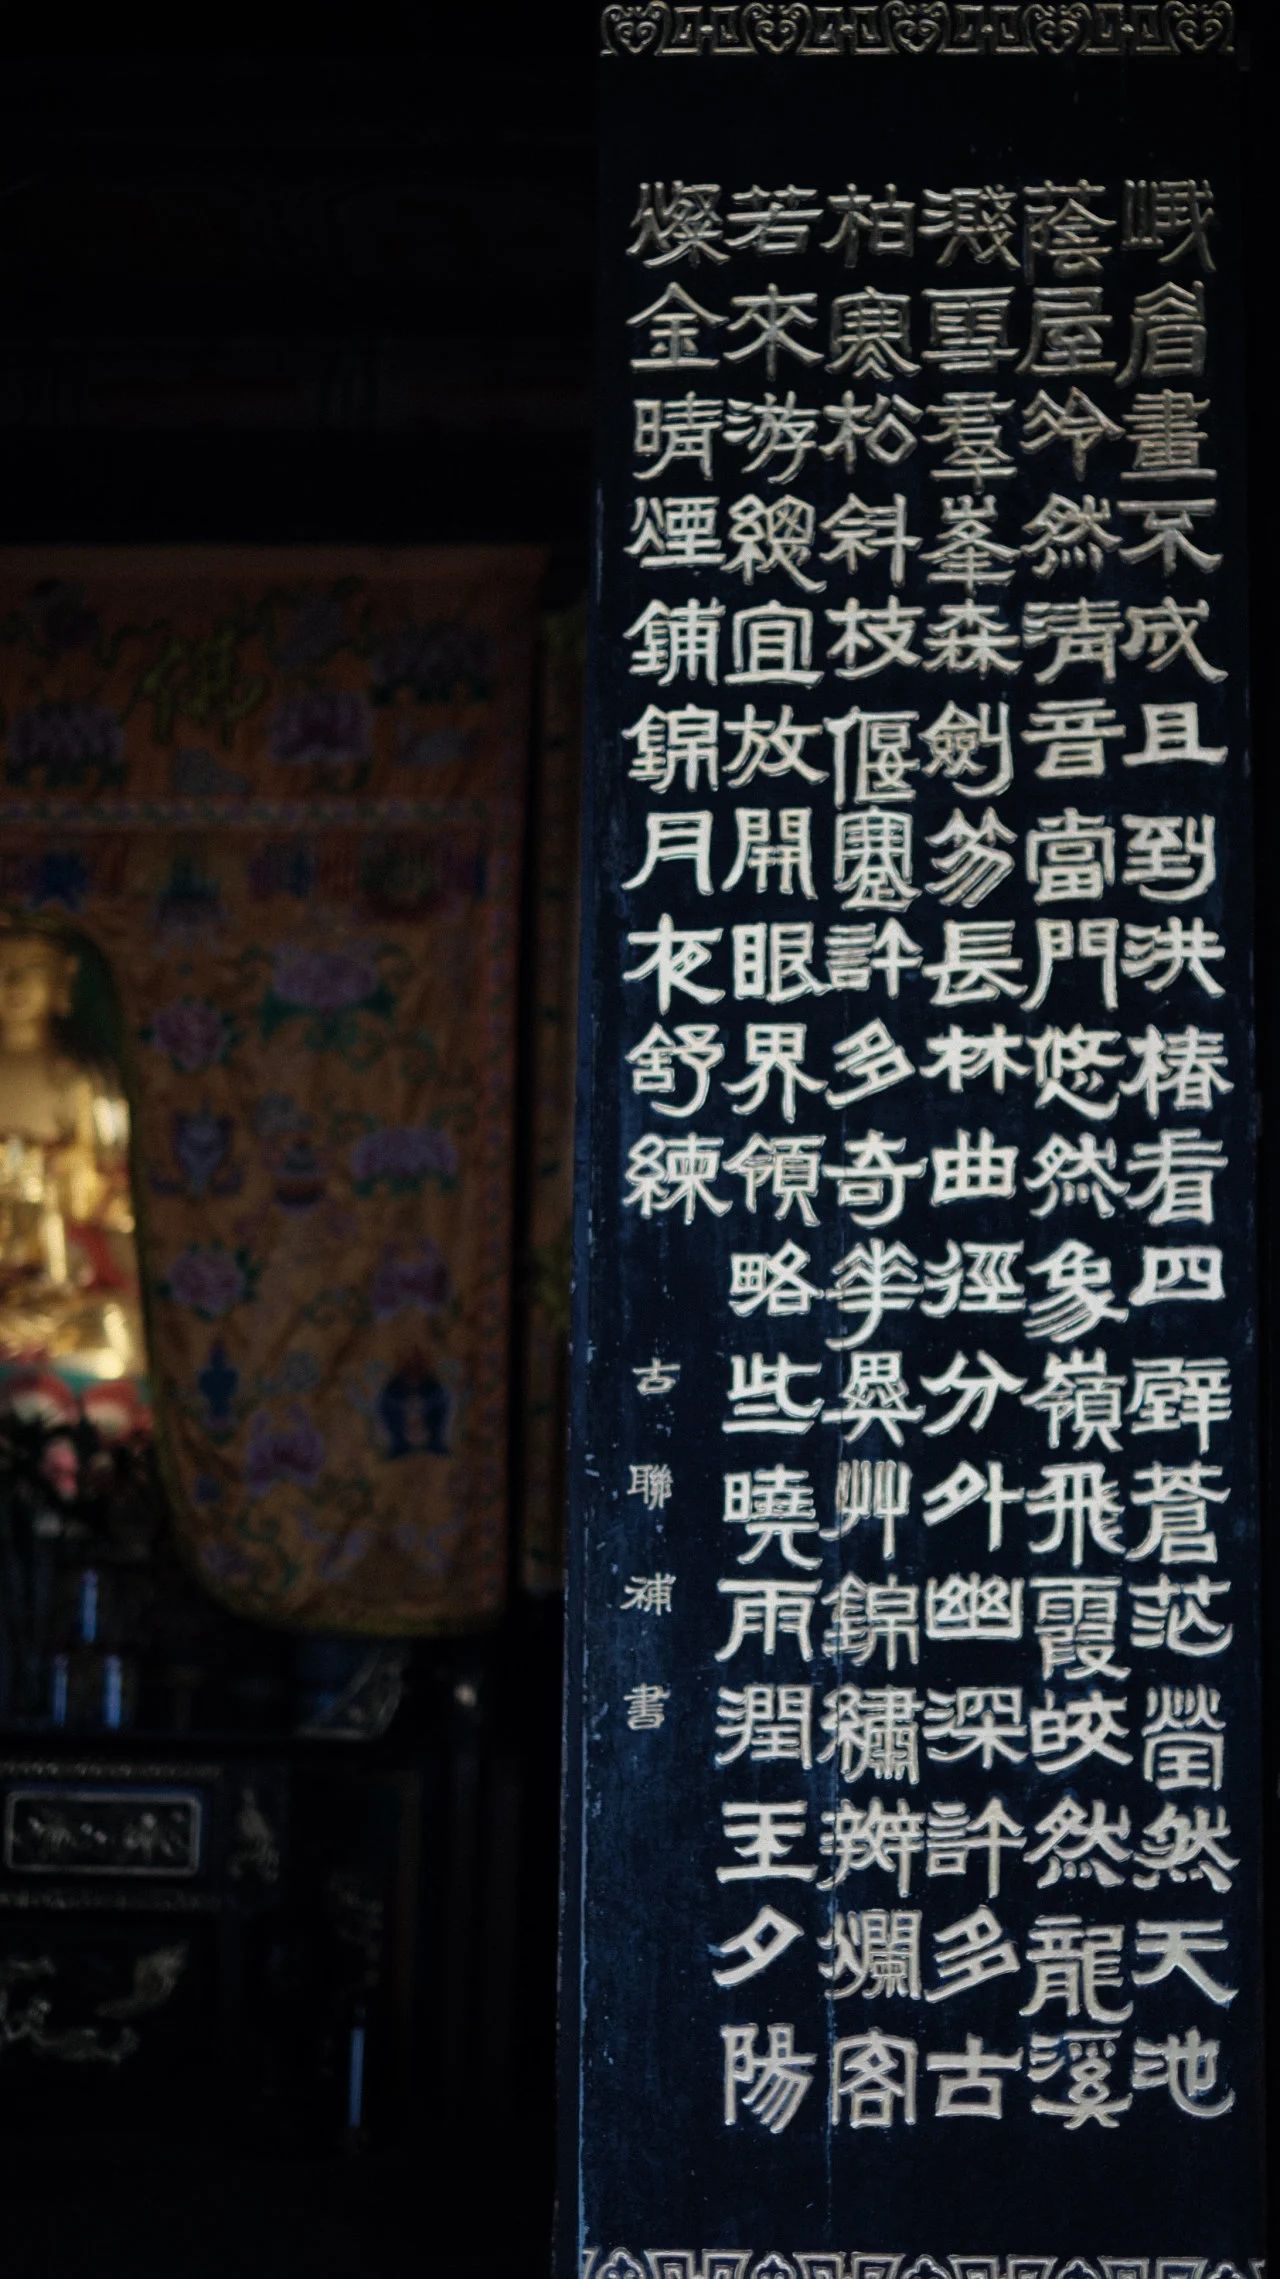 峨眉畫不成且到洪椿看四壁蒼茫瑩然天池
蔭屋泠然清音當門悠然象嶺飛霞皎然龍溪
濺雪羣峯森劍笏長林曲徑分外幽深許多古
柏寒松斜枝偃蹇許多奇華異艸錦繡辬爛客
若來游總宜放開眼界領略些曉雨潤玉夕陽
燦金晴煙鋪錦月夜舒練
古聯補書